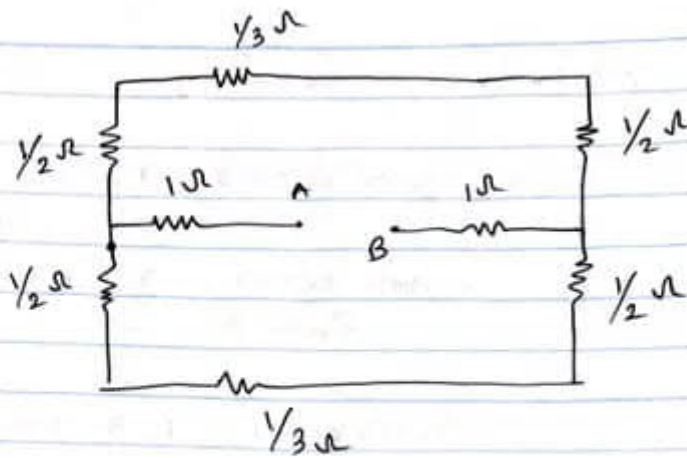 1/3 Ω
1/2 Ω
1/2 Ω
1Ω
A
1Ω
B
1/2 Ω
1/2 Ω
1/3 Ω